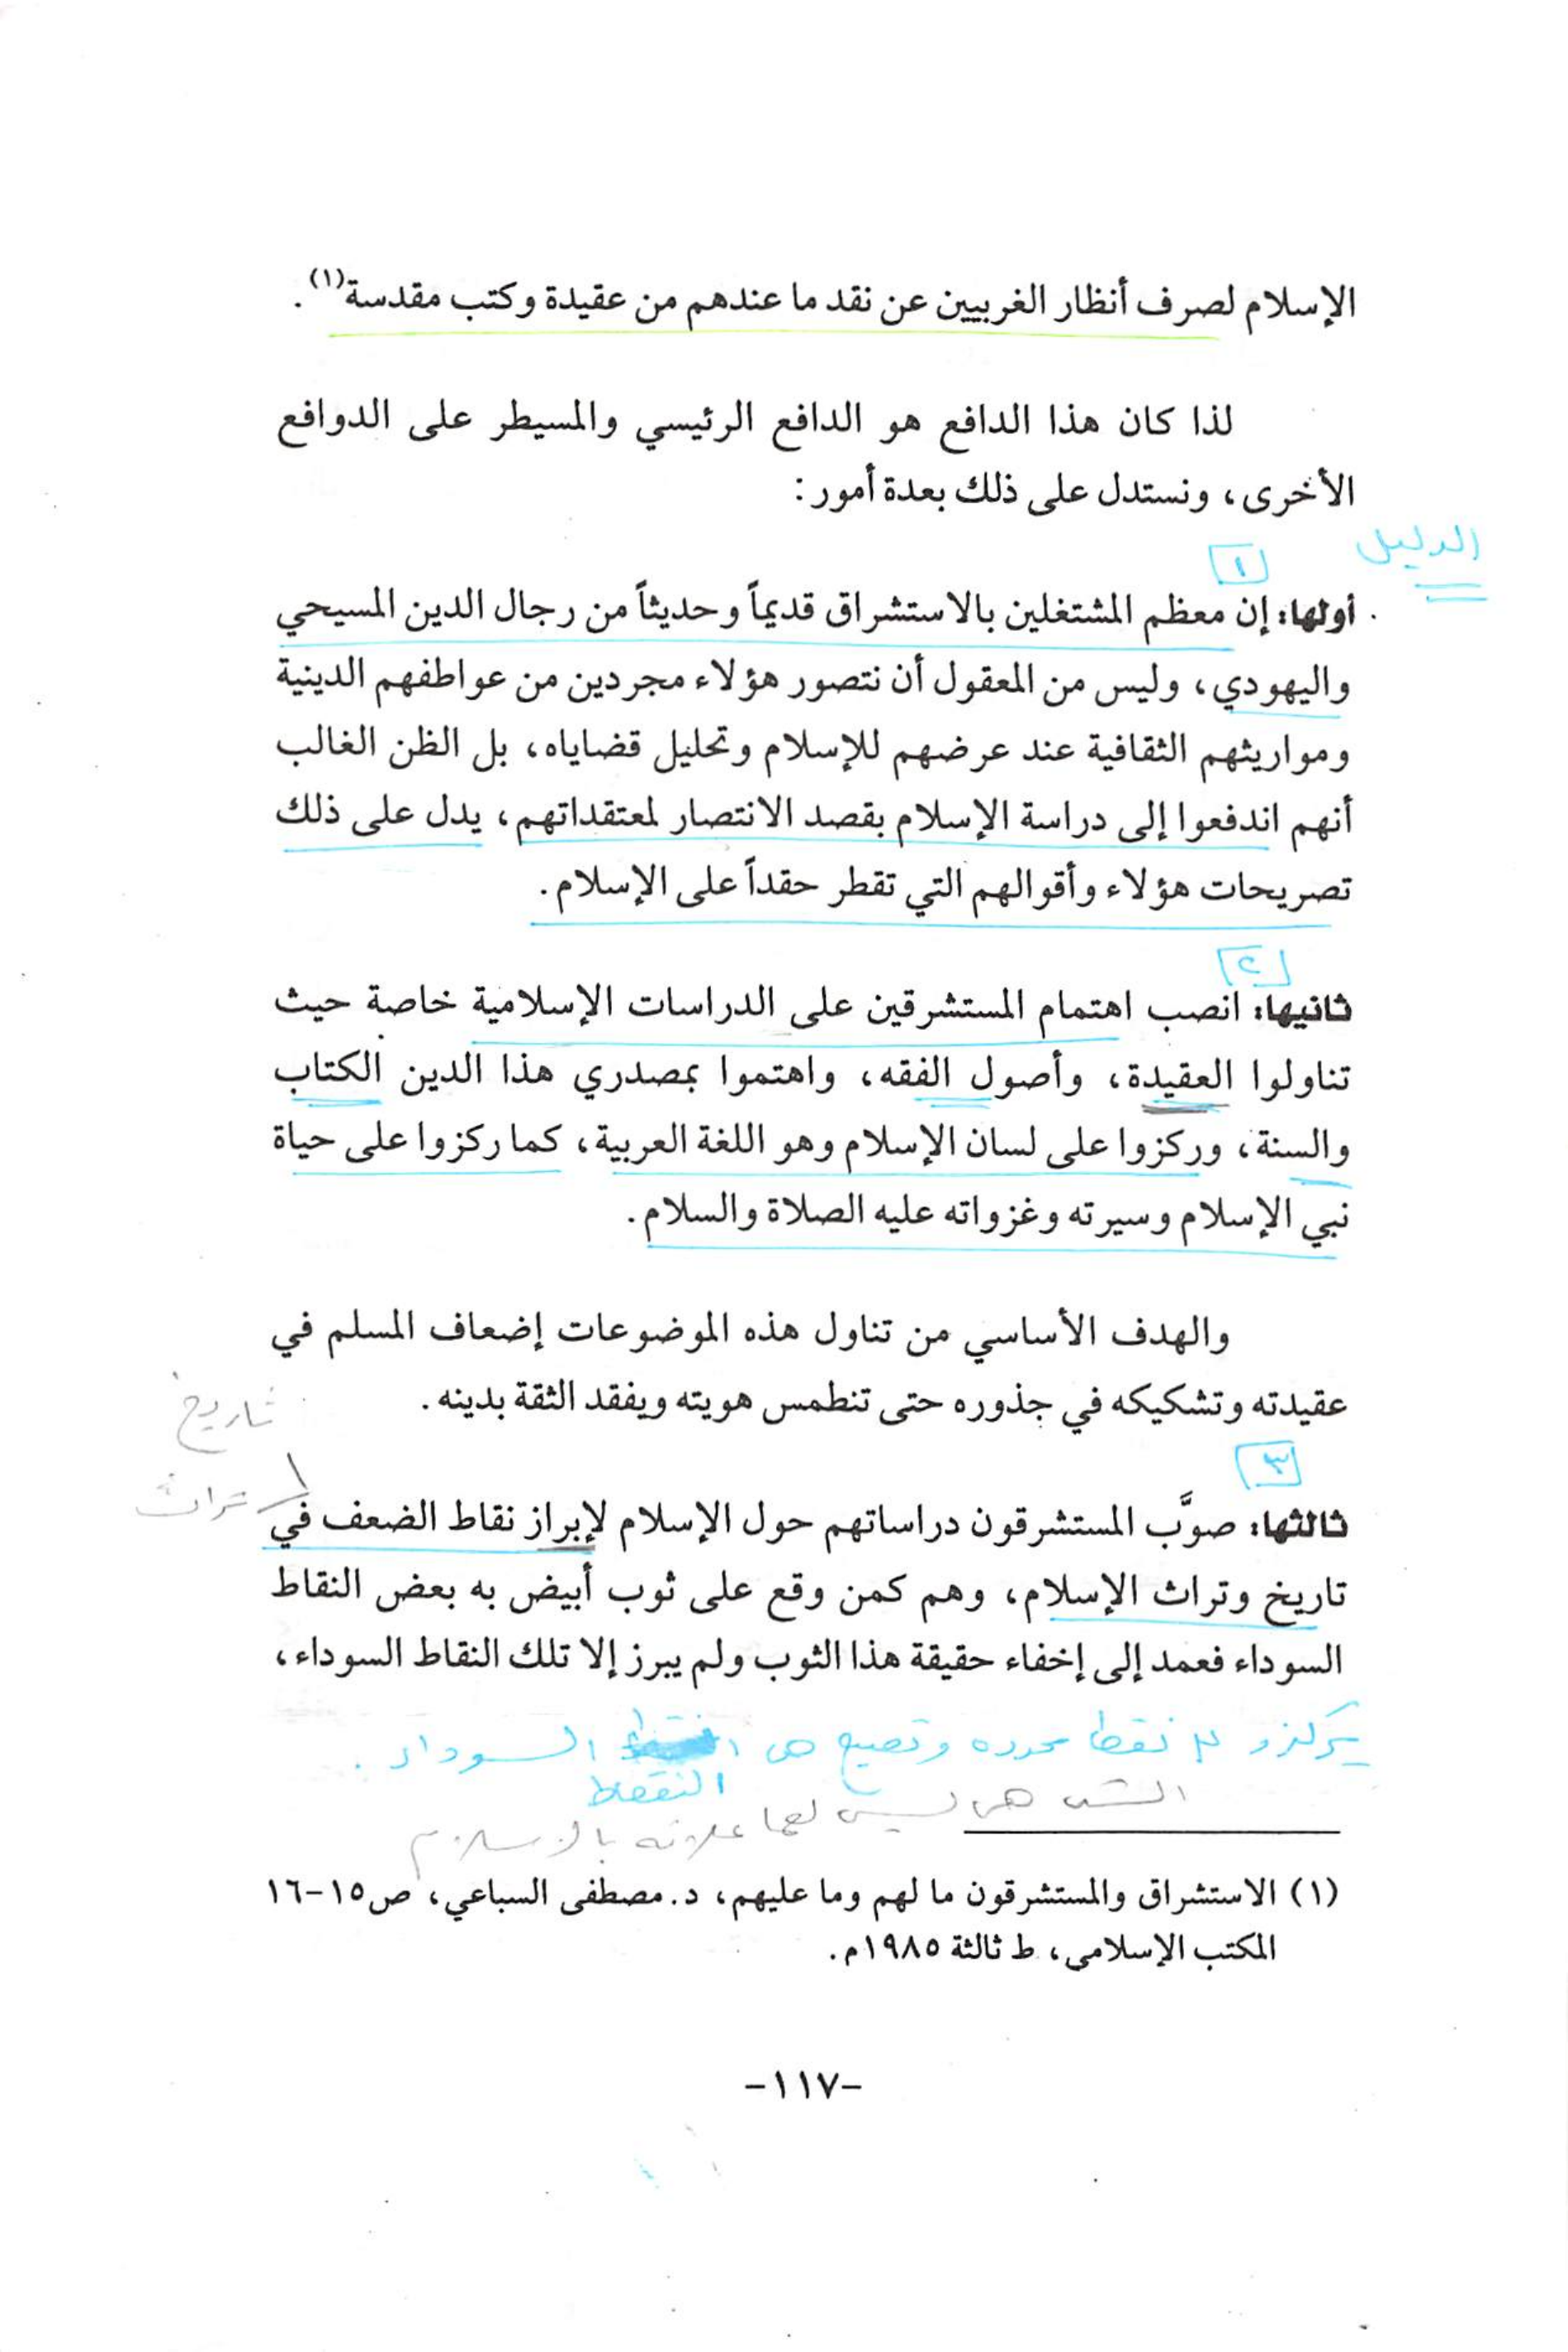 الإسلام لصرف أنظار الغربيين عن نقد ما عندهم من عقيدة وكتب مقدسة(١).
لذا كان هذا الدافع هو الدافع الرئيسي والمسيطر على الدوافع
الأخرى، ونستدل على ذلك بعدة أمور:
الدليل
١
أولها: إن معظم المشتغلين بالاستشراق قديماً وحديثاً من رجال الدين المسيحي
واليهودي، وليس من المعقول أن نتصور هؤلاء مجردين من عواطفهم الدينية
ومواريثهم الثقافية عند عرضهم للإسلام وتحليل قضاياه، بل الظن الغالب
أنهم اندفعوا إلى دراسة الإسلام بقصد الانتصار لمعتقداتهم، يدل على ذلك
تصريحات هؤلاء وأقوالهم التي تقطر حقداً على الإسلام.
٢
ثانيها: انصب اهتمام المستشرقين على الدراسات الإسلامية خاصة حيث
تناولوا العقيدة، وأصول الفقه، واهتموا بمصدري هذا الدين الكتاب
والسنة، وركزوا على لسان الإسلام وهو اللغة العربية، كما ركزوا على حياة
نبي الإسلام وسيرته وغزواته عليه الصلاة والسلام.
والهدف الأساسي من تناول هذه الموضوعات إضعاف المسلم في
عقيدته وتشكيكه في جذوره حتى تنطمس هويته ويفقد الثقة بدينه.
تاريخ
٣
تراث
ثالثها: صوَّب المستشرقون دراساتهم حول الإسلام لإبراز نقاط الضعف في
تاريخ وتراث الإسلام، وهم كمن وقع على ثوب أبيض به بعض النقاط
السوداء فعمد إلى إخفاء حقيقة هذا الثوب ولم يبرز إلا تلك النقاط السوداء،
يركزو نقط محدده وتصبح هي السوداء.
النقاط
هي ليس لها علاقة بالإسلام
(١) الاستشراق والمستشرقون ما لهم وما عليهم، د. مصطفى السباعي، ص١٥-١٦
المكتب الإسلامي، ط ثالثة ١٩٨٥م.
-١١٧-